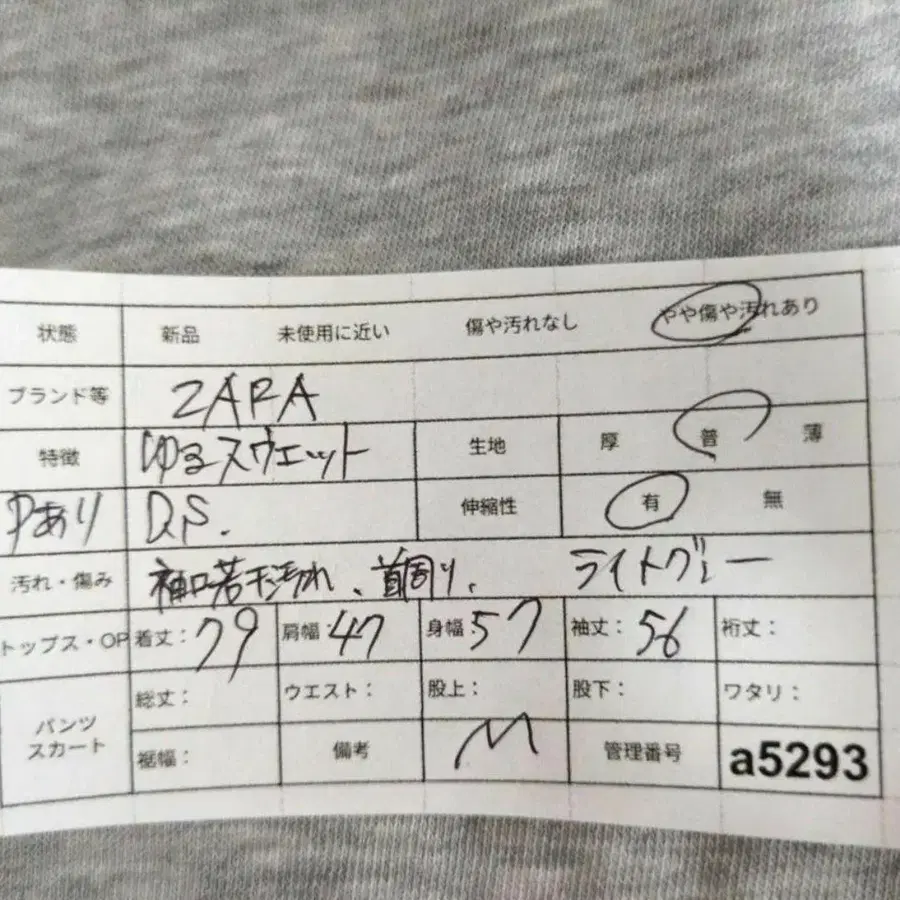 状態 新品 未使用に近い 傷や汚れなし やや傷や汚れあり
ブランド等 ZARA
特徴 ゆるスウェット 生地 厚 普 薄
Pあり D.S. 伸縮性 有 無
汚れ・傷み 袖口若干汚れ、首周り、 ライトグレー
トップス・OP 着丈:79 肩幅:47 身幅:57 袖丈:56 裄丈:
パンツ スカート 総丈: ウエスト: 股上: 股下: ワタリ:
裾幅: 備考 M 管理番号 a5293